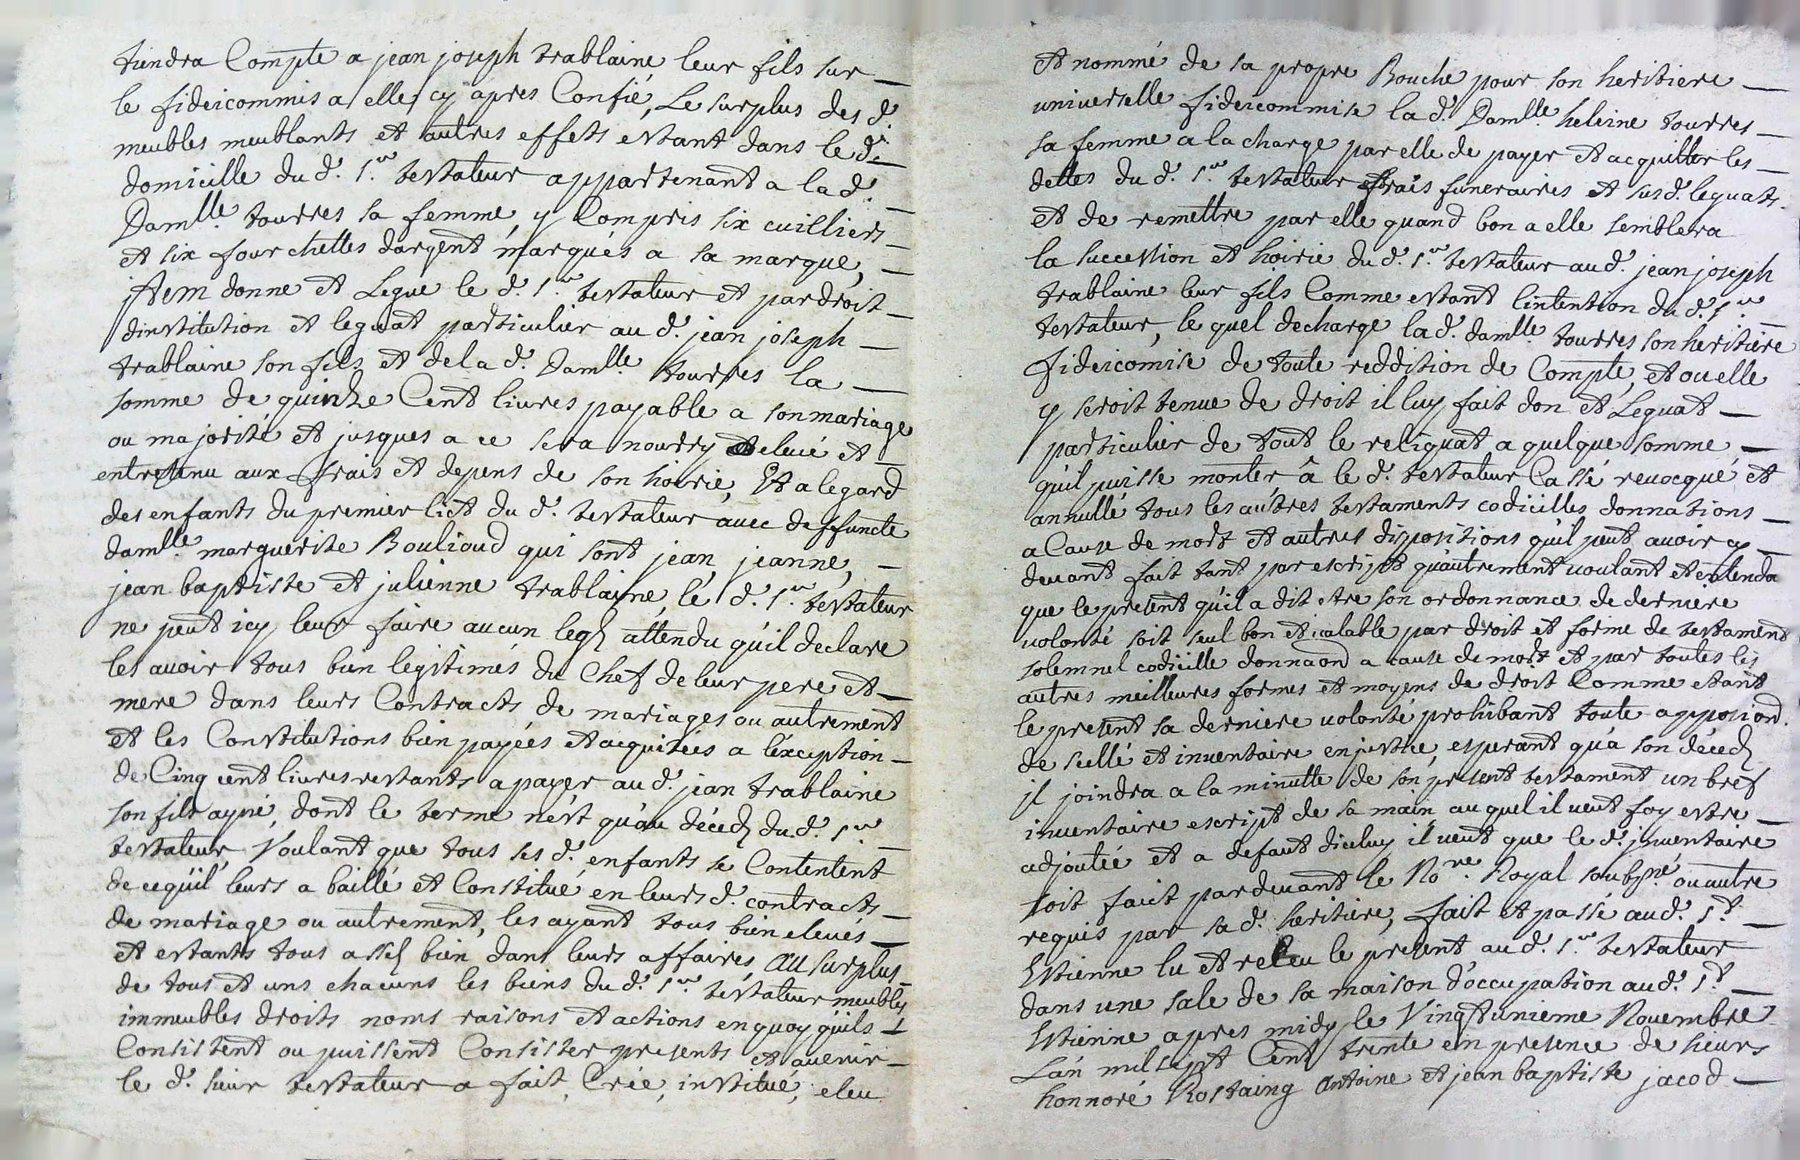 tiendra Compte a jean joseph trablaine leur fils sur
le fideicommis a elle cy apres Confié, Le surplus des d.
meubles meublants et autres effets estant dans le d.
domicille du d. Sr. testateur appartenant a la d.
Damlle. tourres sa femme, y Compris six cuilliers
et six fourchettes dargent marqués a sa marque,
jtem donne et Legue le d. Sr. testateur et par droit
dinstitution et leguat particulier au d. jean joseph
trablaine son fils et de la d. Damlle. tourres la
somme de quinze Cent livres payable a son mariage
ou majorité et jusques a ce sera nourry et elevé et
entretenu aux frais et depens de son hoirie, Et a legard
des enfants du premier lict du d. testateur avec deffuncte
damlle. marguerite Boulioud qui sont jean, jeanne,
jean baptiste et julienne trablaine, le d. Sr. testateur
ne peut icy leur faire aucun legs attendu qu'il declare
les avoir tous bien legitimés du Chef de leur pere et
mere dans leurs Contracts de mariages ou autrement
et les Constitutions bien payées et acquitées a l'exception
des Cinq cent livres restants a payer au d. jean trablaine
son fils ayné, dont le terme n'est qu'au décéds du d. Sr.
testateur, Voulant que tous ses d. enfants se Contentent
de ce qu'il leurs a baillé et Constitué en leurs d. contracts
de mariage ou autrement, les ayant tous bien elevés
et estants tous assés bien dans leurs affaires, au surplus
de tous et uns chacuns les biens du d. Sr. testateur meubles
immeubles droits noms raisons et actions en quoy qu'ils
Consistent ou puissent Consister presents et avenir
le d. sieur testateur a fait, Crée, institué, eleu
et nommé de sa propre Bouche pour son heritiere
universelle fideicommise la d. Damlle. heleine tourres
sa femme a la charge par elle de payer et acquitter les
dettes du d. Sr. testateur frais funeraires et sus d. leguats
et de remettre par elle quand bon a elle semblera
la succession et hoirie du d. Sr. testateur au d. jean joseph
trablaine leur fils Comme estant l'intention du d. Sr.
testateur, le quel decharge la d. damlle. tourres son heritiere
fideicomise de toute reddition de Compte, et ou elle
y seroit tenue de droit il luy fait don et Leguat
particulier de tout le reliquat a quelque somme
qu'il puisse monter â le d. testateur Cassé revocque et
annullé tous les autres testaments codicilles donnations
a Cause de mort et autres dispositions qu'il peut avoir cy
devant fait tant par escript qu'autrement voulant et entend
que le present qu'il a dit etre son ordonnance de derniere
volonté soit seul bon et valable par droit et forme de testament
solemnel codicille donnaon a cause de mort et par toutes les
autres meilleures formes et moyens de droit Comme etant
le present sa derniere volonté prohibant toute apposion
de scellé et inventaire en justice, esperant qu'a son décéds
jl joindra a la minutte de son present testament un bref
inventaire escript de sa main au quel il veut foy estre
adjoutée et a defaut diceluy il veut que le d. jnventaire
soit faict pardevant le Nore. Royal soubsné. ou autre
requis par sa d. heritiere, fait et passé au d. St.
Estienne lu et releu le present au d. Sr. testateur
dans une sale de sa maison d'occupation au d. St.
Estienne apres midy le Vingtunieme Novembre
L'an mil sept Cent trente en presence de sieurs
honnoré Rostaing Antoine et jean baptiste jacod